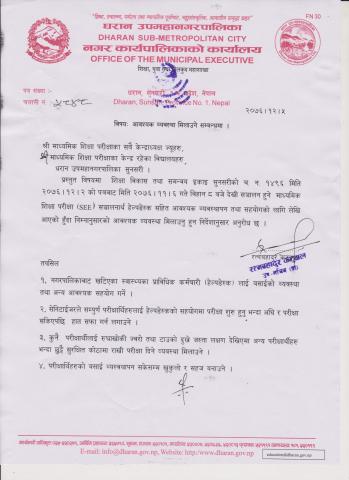 FN 30
धरान उपमहानगरपालिका
DHARAN SUB-METROPOLITAN CITY
नगर कार्यपालिकाको कार्यालय
OFFICE OF THE MUNICIPAL EXECUTIVE
शिक्षा, युवा तथा खेलकुद महाशाखा
पत्र संख्या :
चलानी नं.
Dharan, Sunsari, Province No. 1, Nepal
२०७६।१२।५
विषयः आवश्यक व्यवस्था मिलाउने सम्बन्धमा ।
श्री माध्यमिक शिक्षा परीक्षाका सबै केन्द्राध्यक्ष ज्यूहरु,
श्री माध्यमिक शिक्षा परीक्षाका केन्द्र रहेका विद्यालयहरु,
धरान उपमहानगरपालिका सुनसरी ।
प्रस्तुत विषयमा शिक्षा विकास तथा समन्वय इकाइ सुनसरीको च.नं. १४९६ मिति
२०७६।१२।२ को पत्रबाट मिति २०७६।१२।६ गते बिहान ८ बजे देखी सञ्चालन हुने माध्यमिक
शिक्षा परीक्षा (SEE) सञ्चालनार्थ हेल्पडेस्क सहित आवश्यक व्यवस्थापन तथा सहयोगको लागि लेखि
आएको हुँदा निम्नानुसारको आवश्यक व्यवस्था मिलाउनु हुन निर्देशानुसार अनुरोध छ ।
रत्नबहादुर
उप-सचिव
तपसिल
१. नगरपालिकाबाट खटिएका स्वास्थ्यका प्राविधिक कर्मचारी (हेल्पडेस्क) लाई बसाईको व्यवस्था
तथा अन्य आवश्यक सहयोग गर्ने ।
२. सेनिटाईजरले सम्पुर्ण परीक्षार्थीहरुलाई हेल्पडेस्कको सहयोगमा परीक्षा शुरु हुनु भन्दा अघि र परीक्षा
सकिएपछि हात सफा गर्न लगाउने ।
३. कुनै परीक्षार्थीलाई रुघाखोकी ज्वरो तथा टाउको दुख्ने जस्ता लक्षण देखिएमा अन्य परीक्षार्थीहरु
भन्दा छुट्टै सुरक्षित कोठामा राखी परीक्षा दिने व्यवस्था मिलाउने ।
४. परीक्षार्थीहरुको बसाई व्यवस्थापन सकेसम्म खुकुलो र सहज बनाउने ।
E-mail: info@dharan.gov.np, Website: http:/www.dharan.gov.np
education@dharan.gov.np